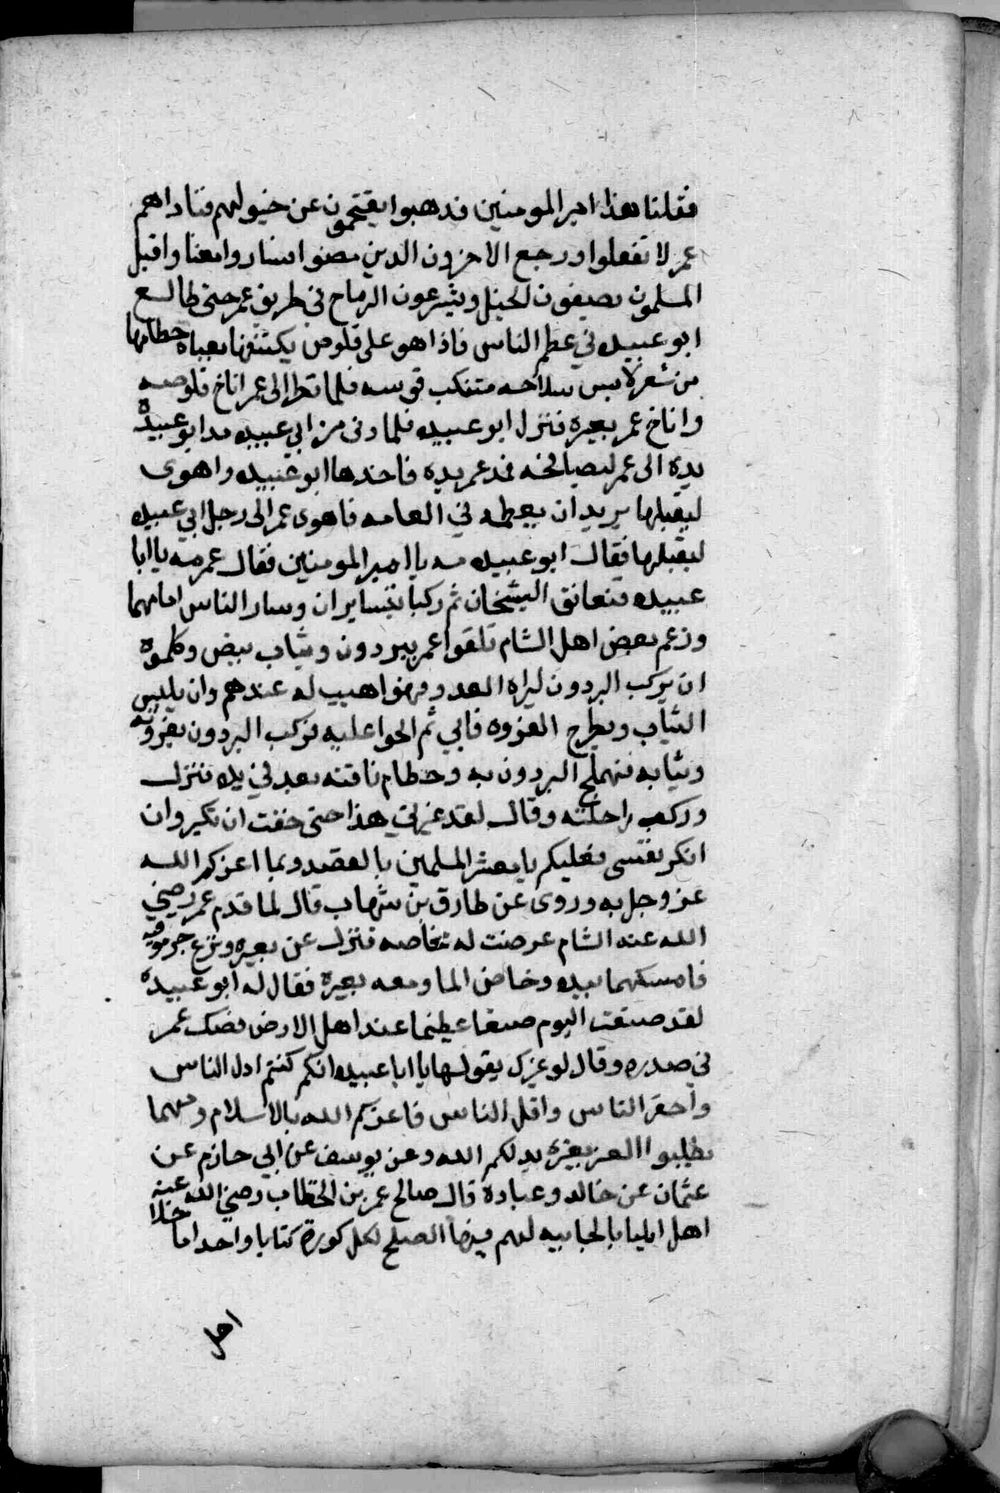 فقلنا هذا امير المومنين فذهبوا يقتحمون عن خيولهم فناداهم
عمر لا تفعلوا ورجع الاخرون الذين مضوا فساروا معنا واقبل
المسلمون يصفون الخيل ويشرعون الرماح في طريق عمر حتى طالع
ابو عبيده في عظم الناس فاذا هو على قلوص يكتنفها بعباة خطامها
من شعر لابس سلاحه متنكب قوسه فلما نظر إلى عمر اناخ قلوصه
واناخ عمر بعيره فنزل ابو عبيده فلما دنى من ابي عبيده مد ابو عبيدة
يده الى عمر ليصافحه فمد عمر يده فاخذها ابو عبيده واهوى
ليقبلها يريد ان يعظمه في العامه فاهوى عمر الى رجل ابي عبيده
ليقبلها فقال ابو عبيده مه يا امير المومنين فقال عمر مه يا ابا
عبيده فتعانق الشيخان ثم ركبا يتسايران وسار الناس امامهما
وزعم بعض اهل الشام تلقوا عمر ببردون وثياب بيض وكلموه
ان يركب البردون ليراه العدو فهو اهيب له عندهم وان يلبس
الثياب ويطرح الفروه فابي ثم الحوا عليه فركب البردون بفروته
وثيابه فهملج البردون به وخطام ناقته بعد في يده فنزل
وركب راحلته وقال لقد غيرني هذا حتى خفت ان تكبر وان
انكر نفسي فعليكم يا معشر المسلمين بالقصد وبما اعزكم الله
عز وجل به وروى عن طارق بن شهاب قال لما قدم عمر رضي
الله عنه الشام عرضت له مخاضه فنزل عن بعيره ونزع جرموقيه
فامسكهما بيده وخاض الما ومعه بعيره فقال له ابو عبيدة
لقد صنعت اليوم صنعا عظيما عند اهل الارض فصك عمر
في صدره وقال لو غيرك يقولها يا ابا عبيده انكم كنتم اذل الناس
واحقر الناس واقل الناس فاعزكم الله بالاسلام ومهما
تطلبوا العز بغيره يذلكم الله وعن يوسف عن ابي حازم عن
عثمان عن خالد وعبادة قال صالح عمر بن الخطاب رضي الله عنه
اهل ايليا بالجابيه لهم فيها الصلح لكل كورة كتابا واحدا ما خلا
اهل